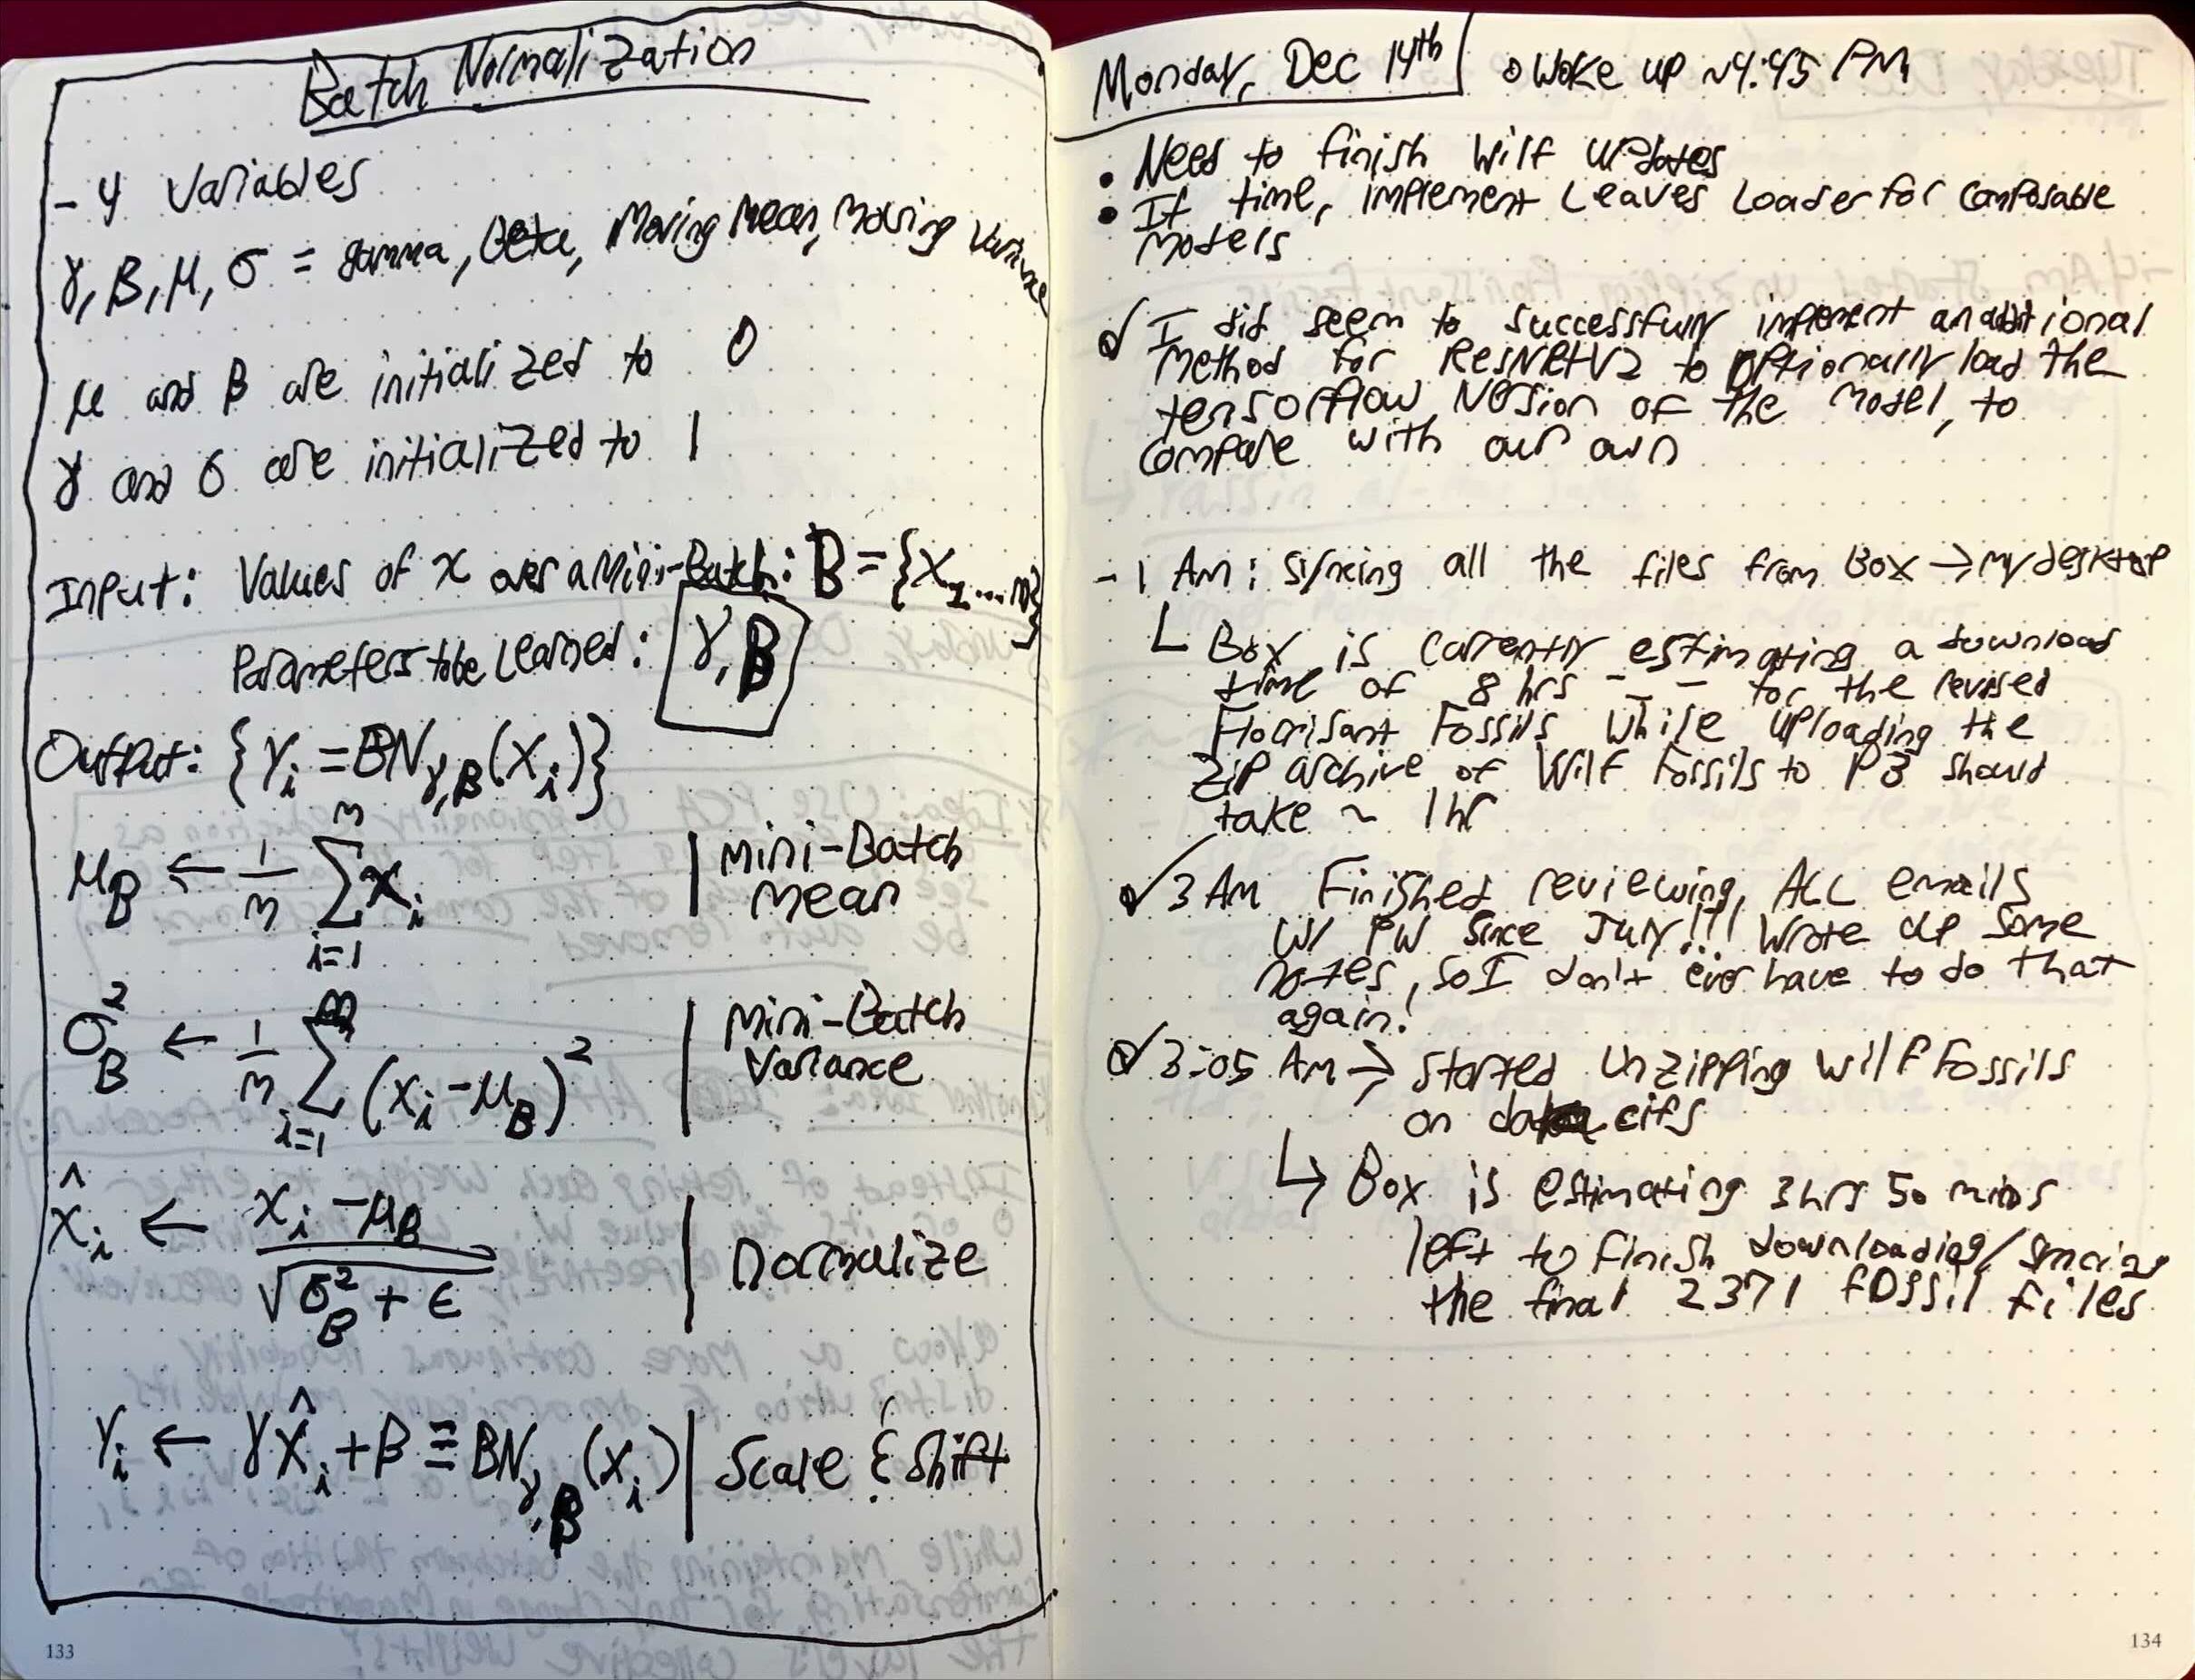 Batch Normalization
- 4 Variables
γ, β, μ, σ = gamma, beta, Moving Mean, Moving Variance
μ and β are initialized to 0
γ and σ are initialized to 1
Input: Values of x over a Mini-Batch: B = {x₁...m}
Parameters to be Learned: γ, β
Output: {yᵢ = BN_γ,β(xᵢ)}
μ_B ← 1/m Σᵢ₌₁ᵐ xᵢ | Mini-Batch Mean
σ²_B ← 1/m Σᵢ₌₁ᵐ (xᵢ - μ_B)² | Mini-Batch Variance
x̂ᵢ ← (xᵢ - μ_B) / √(σ²_B + ϵ) | Normalize
yᵢ ← γx̂ᵢ + β ≡ BN_γ,β(xᵢ) | Scale & Shift
133
Monday, Dec 14th
Woke up ~4:45 PM
• Need to finish Wilf updates
• If time, implement Leaves Loader for composable
models
✓ I did seem to successfully implement an additional
method for ResNetV2 to optionally load the
tensorflow version of the model, to
compare with our own
- 1 AM: Syncing all the files from Box → my desktop
↳ Box is currently estimating a download
time of 8 hrs -_- for the revised
Florissant Fossils while uploading the
zip archive of Wilf Fossils to P3 should
take ~ 1hr
✓ 3 AM Finished reviewing ALL emails
w/ PW since July!!! Wrote up some
notes, so I don't ever have to do that
again!
✓ 3:05 AM → Started Unzipping Wilf Fossils
on data cifs
↳ Box is estimating 3 hrs 50 mins
left to finish downloading/syncing
the final 2371 fossil files
134